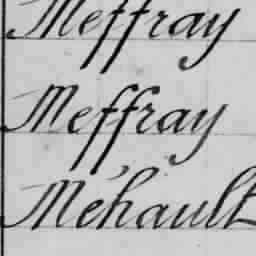 Meffray
Meffray
Méhault